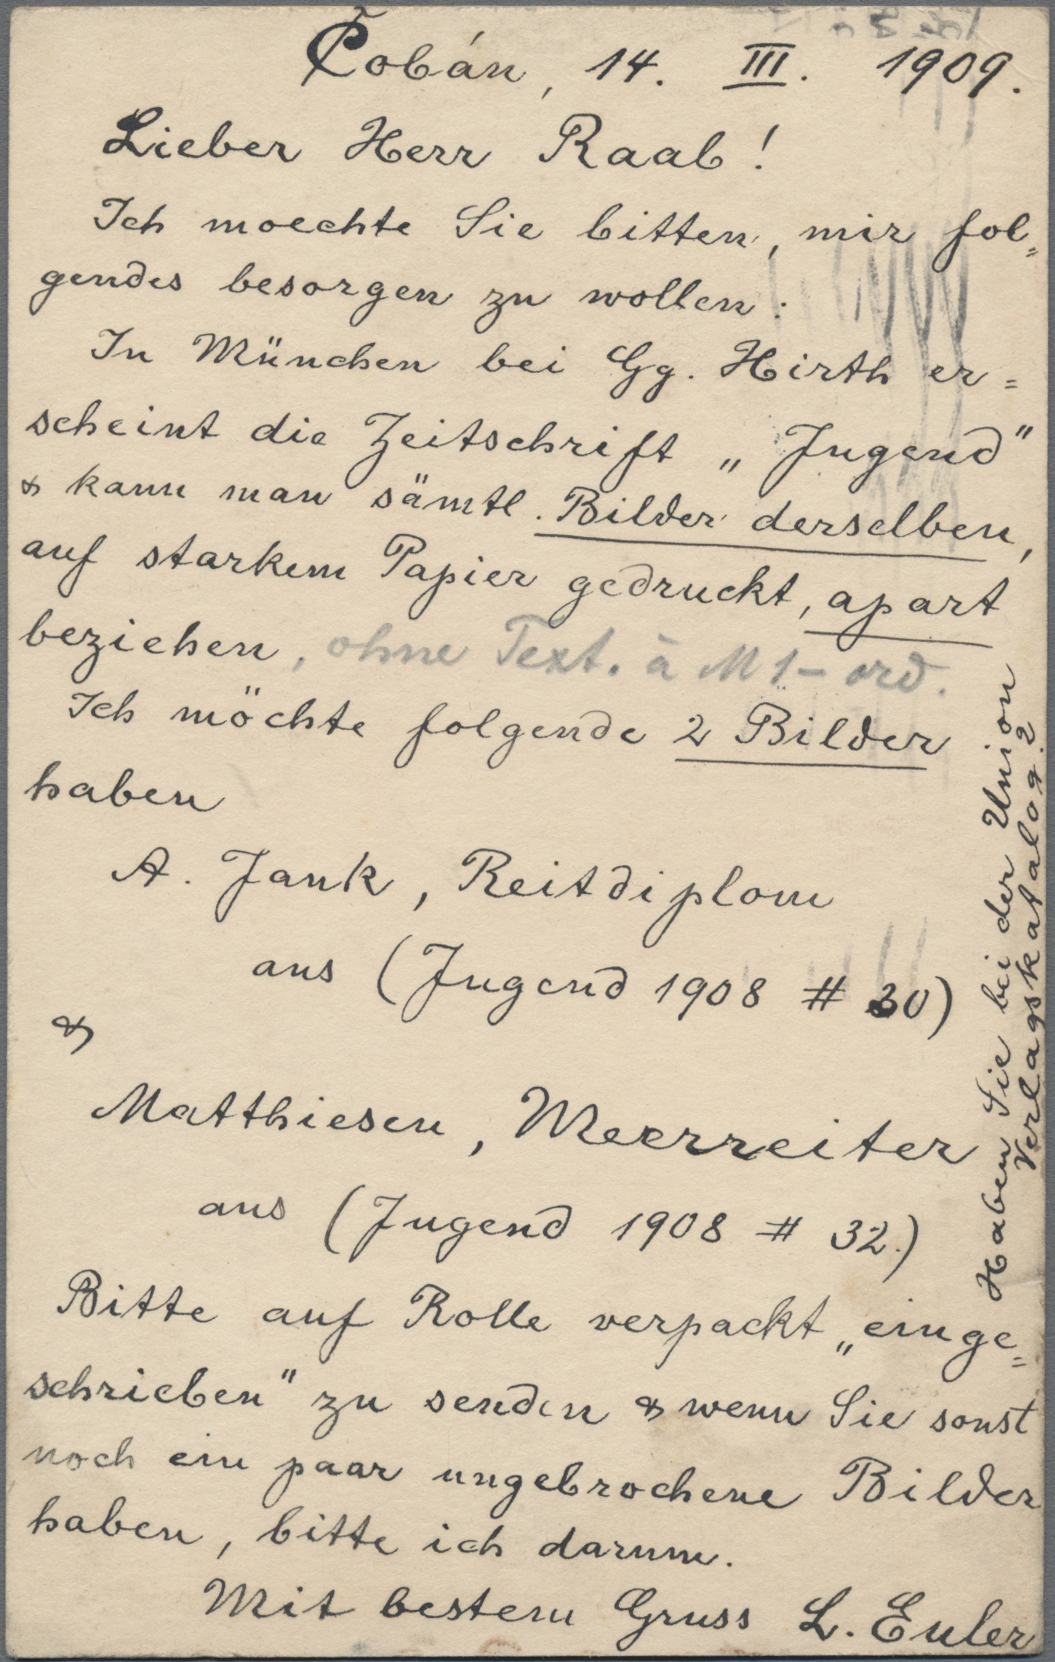 Cobán, 14. III. 1909.
Lieber Herr Raab!
Ich moechte Sie bitten, mir fol=
gendes besorgen zu wollen:
In München bei Gg. Hirth er=
scheint die Zeitschrift „Jugend"
& kann man sämtl. Bilder derselben,
auf starkem Papier gedruckt, apart
beziehen, ohne Text. à M 1– ord.
Ich möchte folgende 2 Bilder
haben
A. Jank, Reitdiplom
aus (Jugend 1908 # 30)
&
Matthiesen, Meerreiter
aus (Jugend 1908 # 32.)
Bitte auf Rolle verpackt „einge=
schrieben" zu senden & wenn Sie sonst
noch ein paar ungebrochene Bilder
haben, bitte ich darum.
Mit bestem Gruss L. Euler
Haben Sie bei der Union
Verlagskatalog?